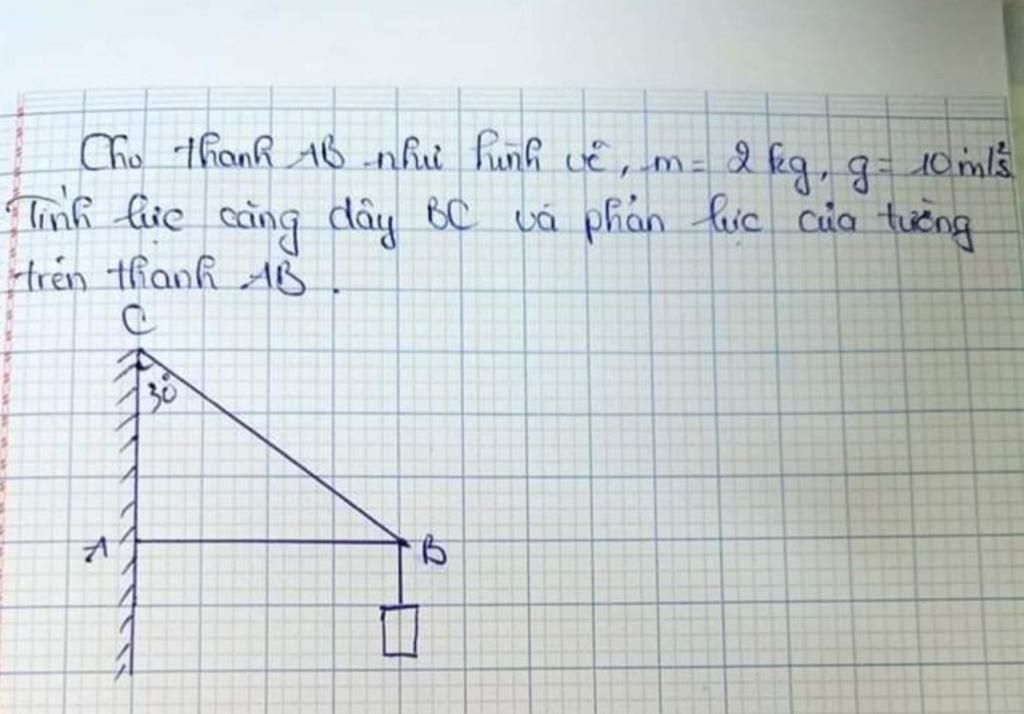 Cho thanh AB như hình vẽ, m = 2 kg, g = 10 m/s²
Tính lực căng dây BC và phản lực của tường
trên thanh AB.
C
30°
A
B